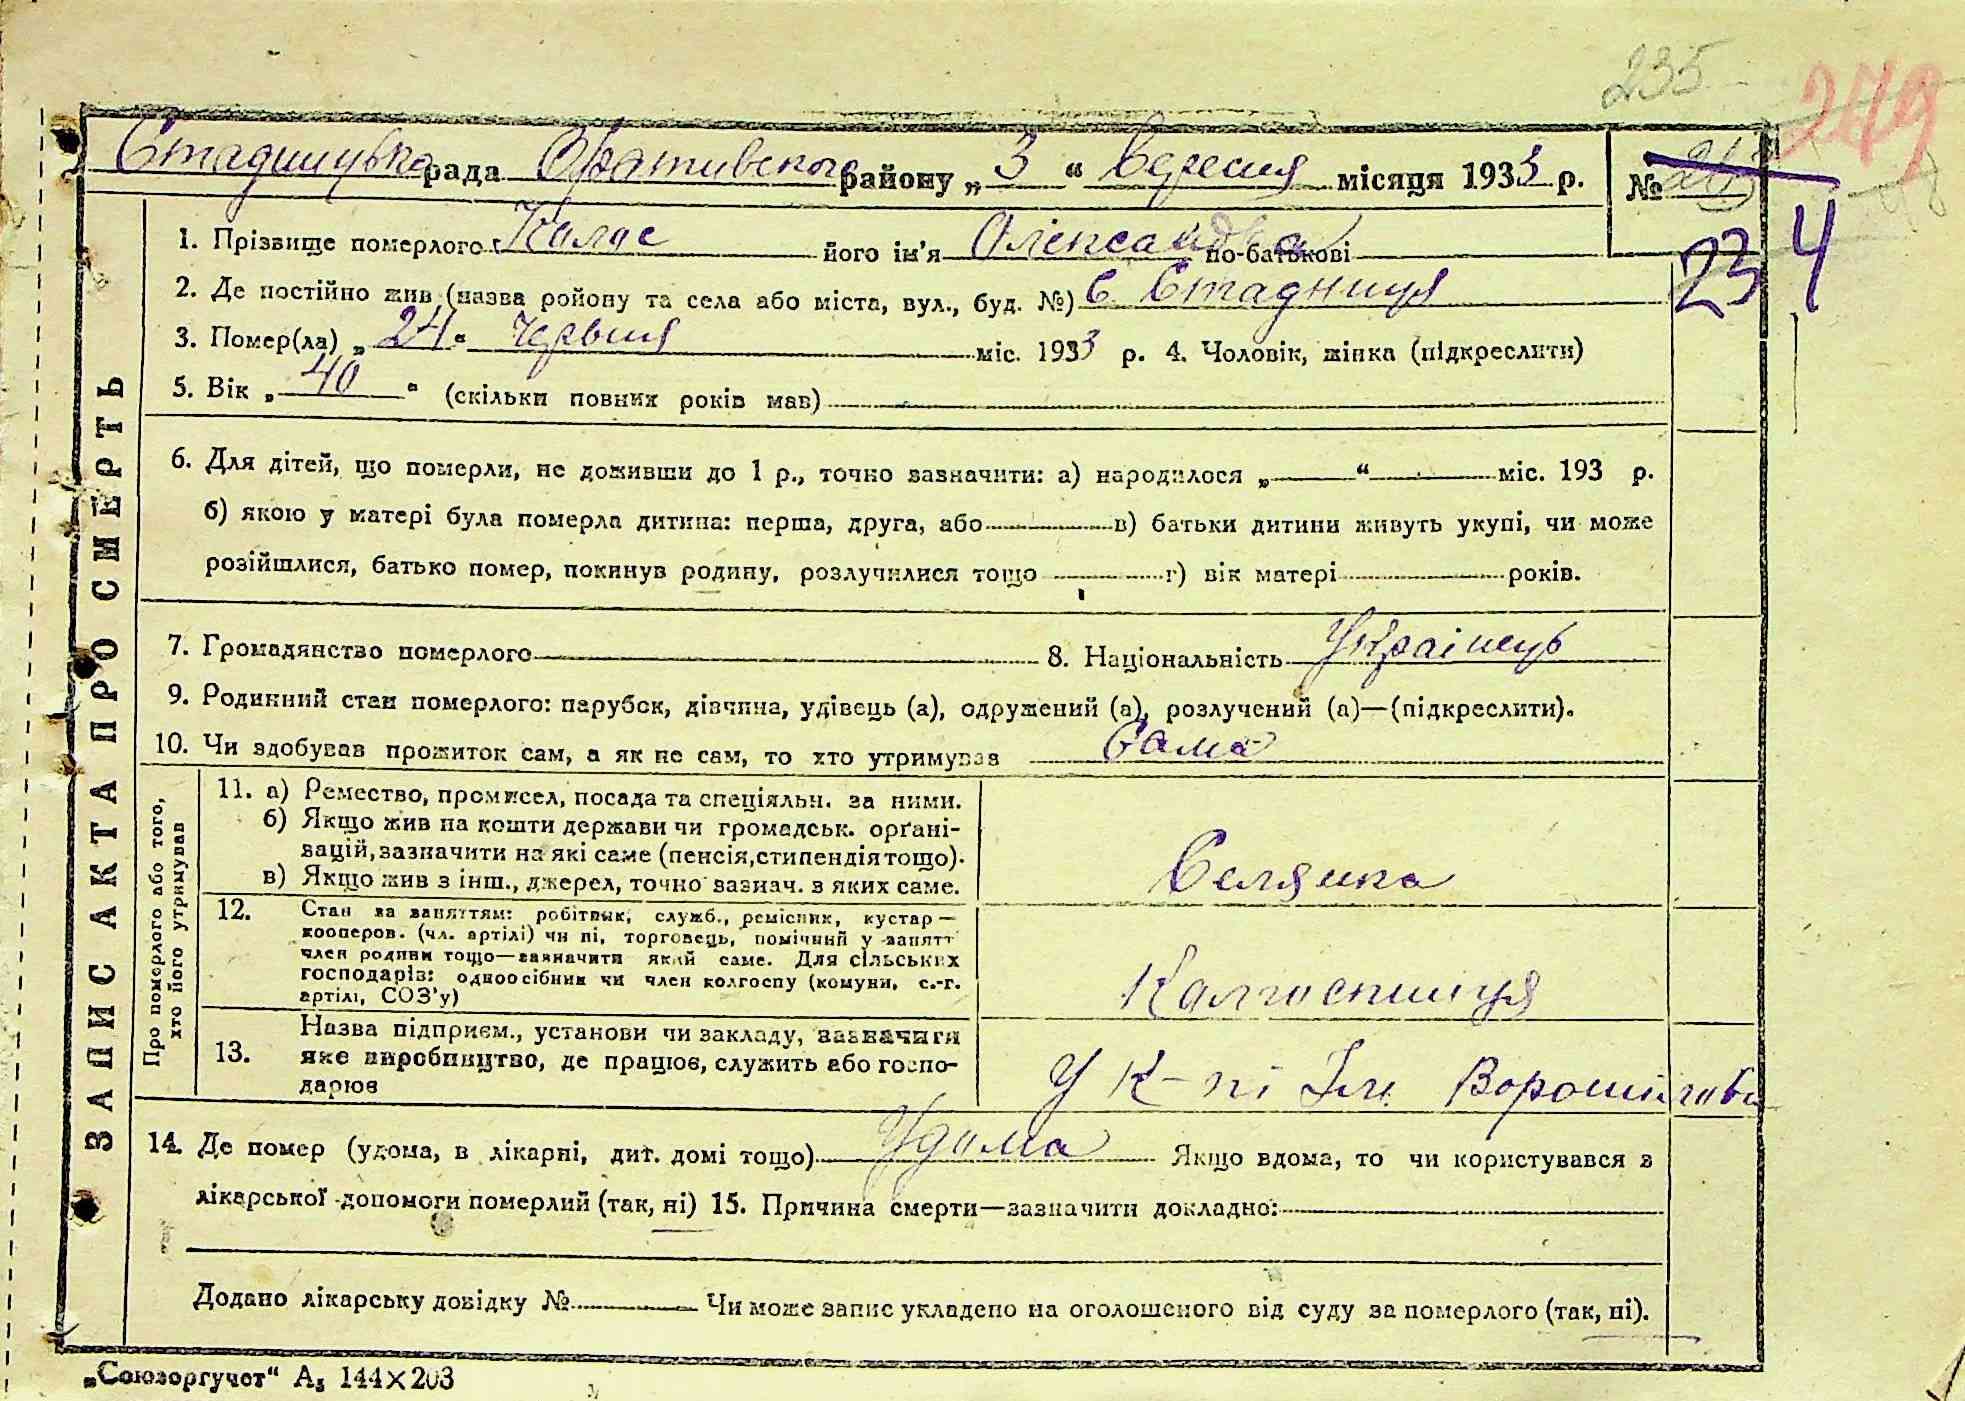 235
249
Стадницька рада Оратівського району „ 3 “ вересня місяця 1933 р. №
234
1. Прізвище померлого Калас його ім'я Олександра по-батькові
2. Де постійно жив (назва ройону та села або міста, вул., буд. №) С. Стадниця
3. Помер(ла) „ 24 “ червня міс. 1933 р. 4. Чоловік, жінка (підкреслити)
5. Вік „ 40 “ (скільки повних років мав)
6. Для дітей, що померли, не доживши до 1 р., точно зазначити: а) народилося „ “ міс. 193 р.
б) якою у матері була померла дитина: перша, друга, або в) батьки дитини живуть укупі, чи може
розійшлися, батько помер, покинув родину, розлучилися тощо г) вік матері років.
7. Громадянство померлого 8. Національність Українець
9. Родинний стан померлого: парубок, дівчина, удівець (а), одружений (а), розлучений (а)—(підкреслити).
10. Чи здобував прожиток сам, а як не сам, то хто утримував Сама
ЗАПИС АКТА ПРО СМЕРТЬ
Про померлого або того,
хто його утримував
11. а) Ремество, промисел, посада та спеціяльн. за ними.
б) Якщо жив на кошти держави чи громадськ. орґані-
зацій, зазначити на які саме (пенсія, стипендія тощо).
в) Якщо жив з інш., джерел, точно зазнач. з яких саме.
Селянка
12. Стан за заняттям: робітник, служб., ремісник, кустар —
кооперов. (чл. артілі) чи ні, торговець, помічний у занятт
член родини тощо—зазначити який саме. Для сільських
господарів: одноосібник чи член колгоспу (комуни, с.-г.
артілі, СОЗ'у)
Калгоспниця
13. Назва підприєм., установи чи закладу, зазначити
яке виробництво, де працює, служить або госпо-
дарює
У К-пі Ім. Ворошилова
14. Де помер (удома, в лікарні, дит. домі тощо) Удома Якщо вдома, то чи користувався з
лікарської допомоги померлий (так, ні) 15. Причина смерти—зазначити докладно:
Додано лікарську довідку № Чи може запис укладено на оголошеного від суду за померлого (так, ні).
„Союзоргучот“ А₅ 144×203